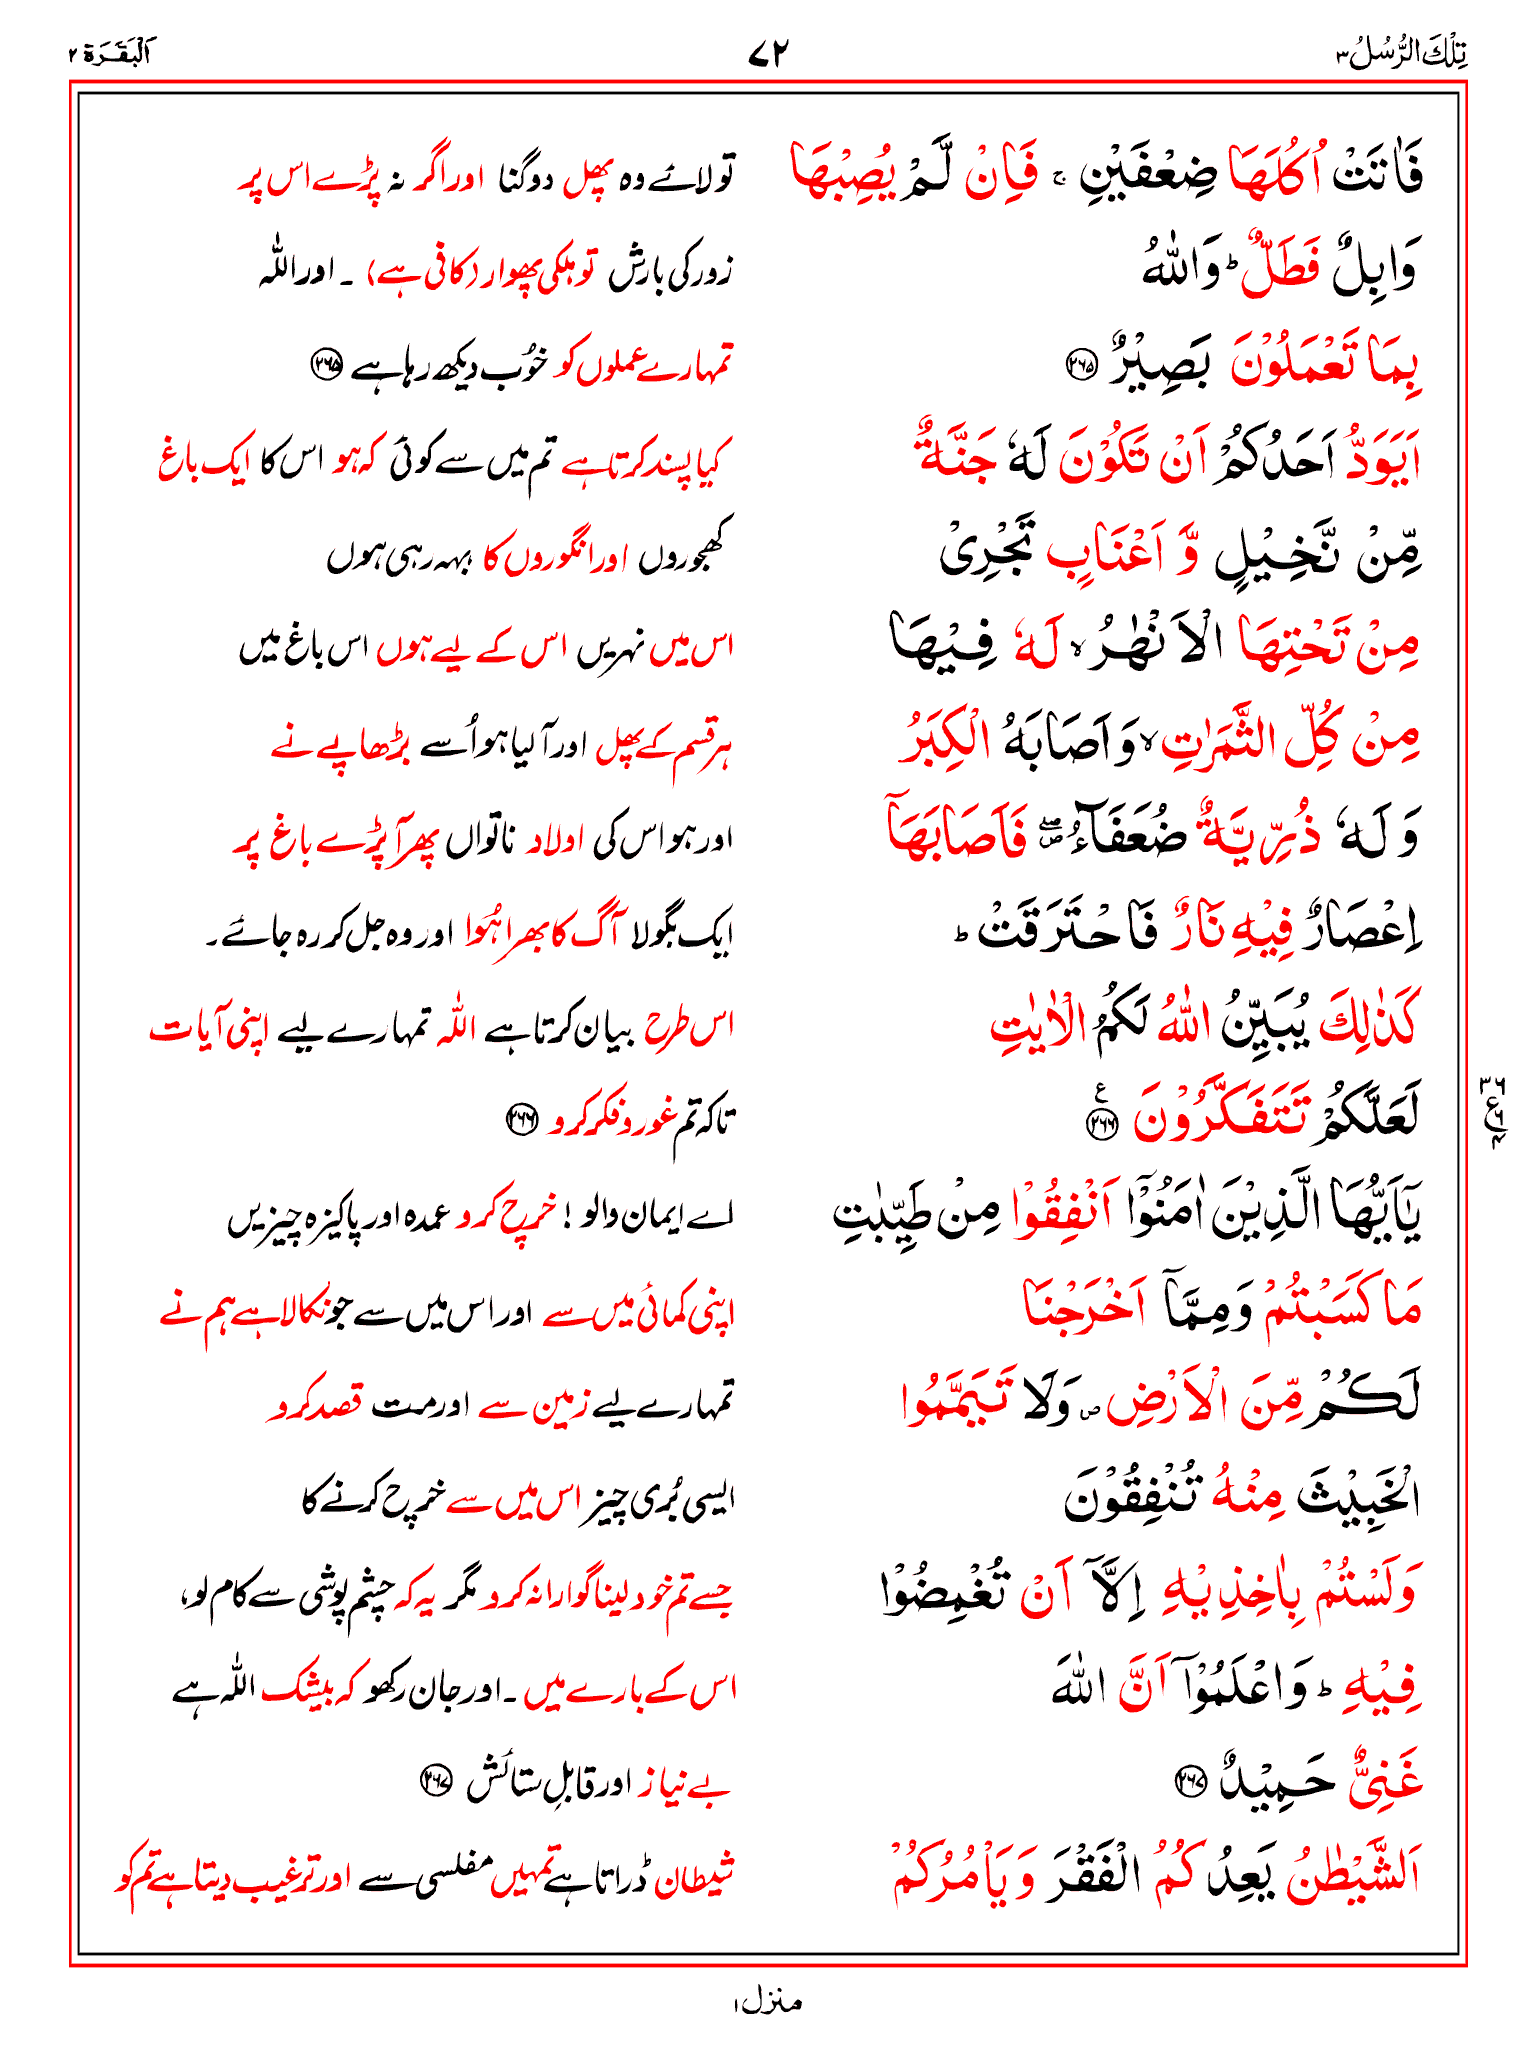 تِلْكَ الرُّسُلُ ۳ ۷۲ اَلْبَقَرَة ۲
فَاٰتَتْ اُكُلَهَا ضِعْفَيْنِ ۚ فَاِنْ لَّمْ يُصِبْهَا تو لائے وہ پھل دوگنا اور اگر نہ پڑے اس پر
وَابِلٌ فَطَلٌّ ؕ وَاللّٰهُ زور کی بارش تو ہلکی پھوار (کافی ہے) ۔ اور اللہ
بِمَا تَعْمَلُوْنَ بَصِيْرٌ ۲۶۵ تمہارے عملوں کو خُوب دیکھ رہا ہے ۲۶۵
اَيَوَدُّ اَحَدُكُمْ اَنْ تَكُوْنَ لَهٗ جَنَّةٌ کیا پسند کرتا ہے تم میں سے کوئی کہ ہو اس کا ایک باغ
مِّنْ نَّخِيْلٍ وَّ اَعْنَابٍ تَجْرِىْ کھجوروں اور انگوروں کا بہہ رہی ہوں
مِنْ تَحْتِهَا الْاَنْهٰرُ ۙ لَهٗ فِيْهَا اس میں نہریں اس کے لیے ہوں اس باغ میں
مِنْ كُلِّ الثَّمَرٰتِ ۙ وَاَصَابَهُ الْكِبَرُ ہر قسم کے پھل اور آ لیا ہو اُسے بڑھاپے نے
وَلَهٗ ذُرِّيَّةٌ ضُعَفَآءُ ۖ فَاَصَابَهَاۤ اور ہو اس کی اولاد ناتواں پھر آ پڑے باغ پر
اِعْصَارٌ فِيْهِ نَارٌ فَاحْتَرَقَتْ ؕ ایک بگولا آگ کا بھرا ہُوا اور وہ جل کر رہ جائے۔
كَذٰلِكَ يُبَيِّنُ اللّٰهُ لَكُمُ الْاٰيٰتِ اس طرح بیان کرتا ہے اللہ تمہارے لیے اپنی آیات
لَعَلَّكُمْ تَتَفَكَّرُوْنَ ۲۶۶ ع تاکہ تم غور و فکر کرو ۲۶۶
۳۶ ع ۶ ۴
يٰۤاَيُّهَا الَّذِيْنَ اٰمَنُوْۤا اَنْفِقُوْا مِنْ طَيِّبٰتِ اے ایمان والو ! خرچ کرو عمدہ اور پاکیزہ چیزیں
مَا كَسَبْتُمْ وَمِمَّاۤ اَخْرَجْنَا اپنی کمائی میں سے اور اس میں سے جو نکالا ہے ہم نے
لَكُمْ مِّنَ الْاَرْضِ ۪ وَلَا تَيَمَّمُوا تمہارے لیے زمین سے اور مت قصد کرو
الْخَبِيْثَ مِنْهُ تُنْفِقُوْنَ ایسی بُری چیز اس میں سے خرچ کرنے کا
وَلَسْتُمْ بِاٰخِذِيْهِ اِلَّاۤ اَنْ تُغْمِضُوْا جسے تم خود لینا گوارا نہ کرو مگر یہ کہ چشم پوشی سے کام لو،
فِيْهِ ؕ وَاعْلَمُوْۤا اَنَّ اللّٰهَ اس کے بارے میں ۔ اور جان رکھو کہ بیشک اللہ ہے
غَنِىٌّ حَمِيْدٌ ۲۶۷ بے نیاز اور قابلِ ستائش ۲۶۷
اَلشَّيْطٰنُ يَعِدُكُمُ الْفَقْرَ وَيَاْمُرُكُمْ شیطان ڈراتا ہے تمہیں مفلسی سے اور ترغیب دیتا ہے تم کو
منزل ۱